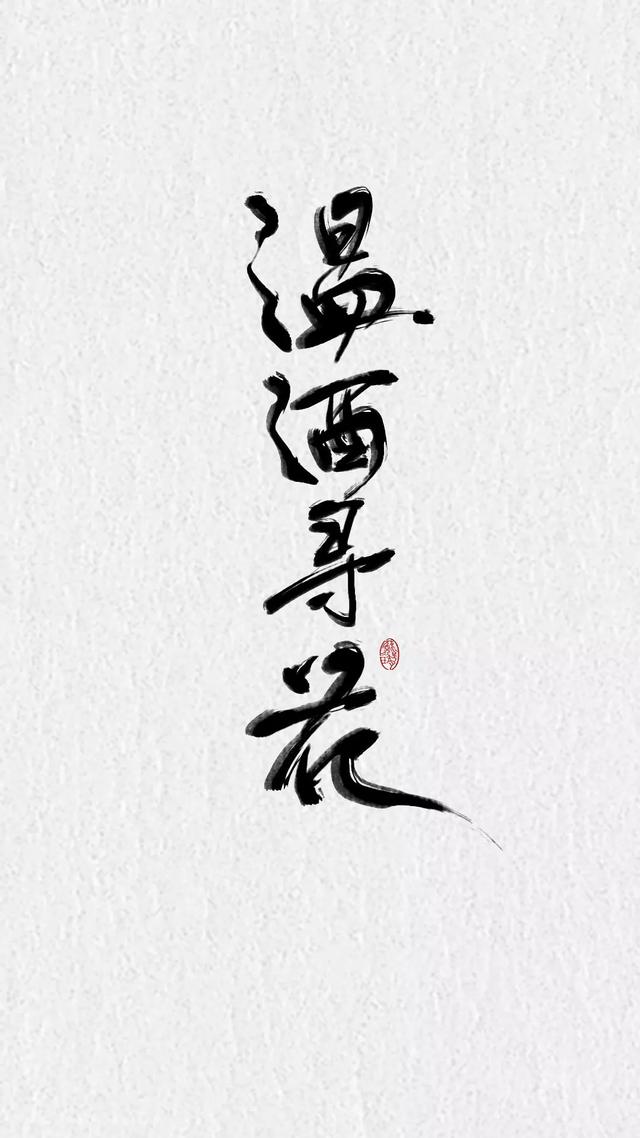 温酒寻花